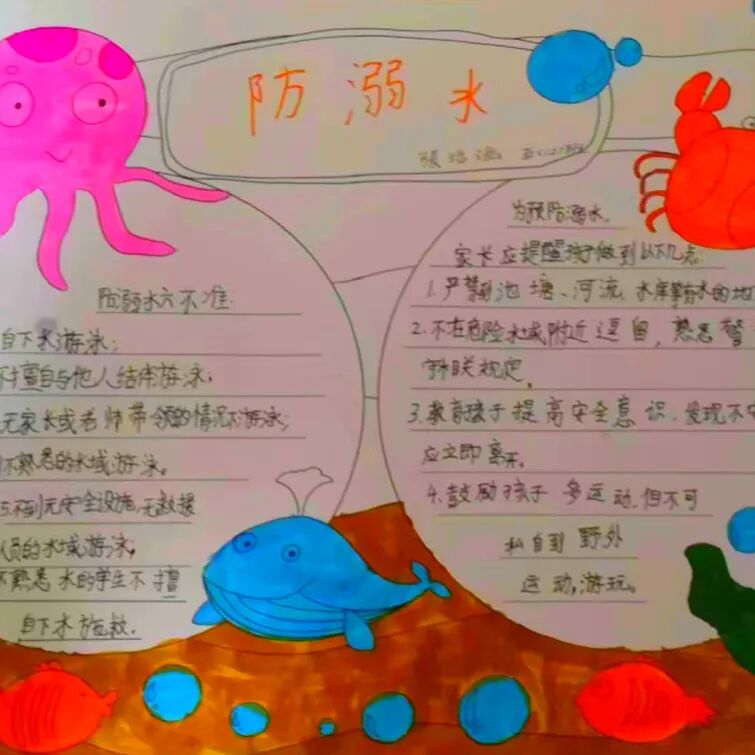 防溺水
防溺水六不准:
自下水游泳;
擅自与他人结伴游泳;
无家长或老师带领的情况下游泳;
不熟悉的水域游泳。
5.不到无安全设施,无救援
人员的水域游泳;
不熟悉水的学生不擅
自下水施救.
为预防溺水,
家长应提醒孩子做到以下几点:
1.严禁到池塘、河流、水库等有水的地
2.不在危险水域附近逗留,熟悉警
规定。
3.教育孩子提高安全意识、发现不安
应立即离开。
4.鼓励孩子多运动,但不可
私自到野外
运动,游玩。